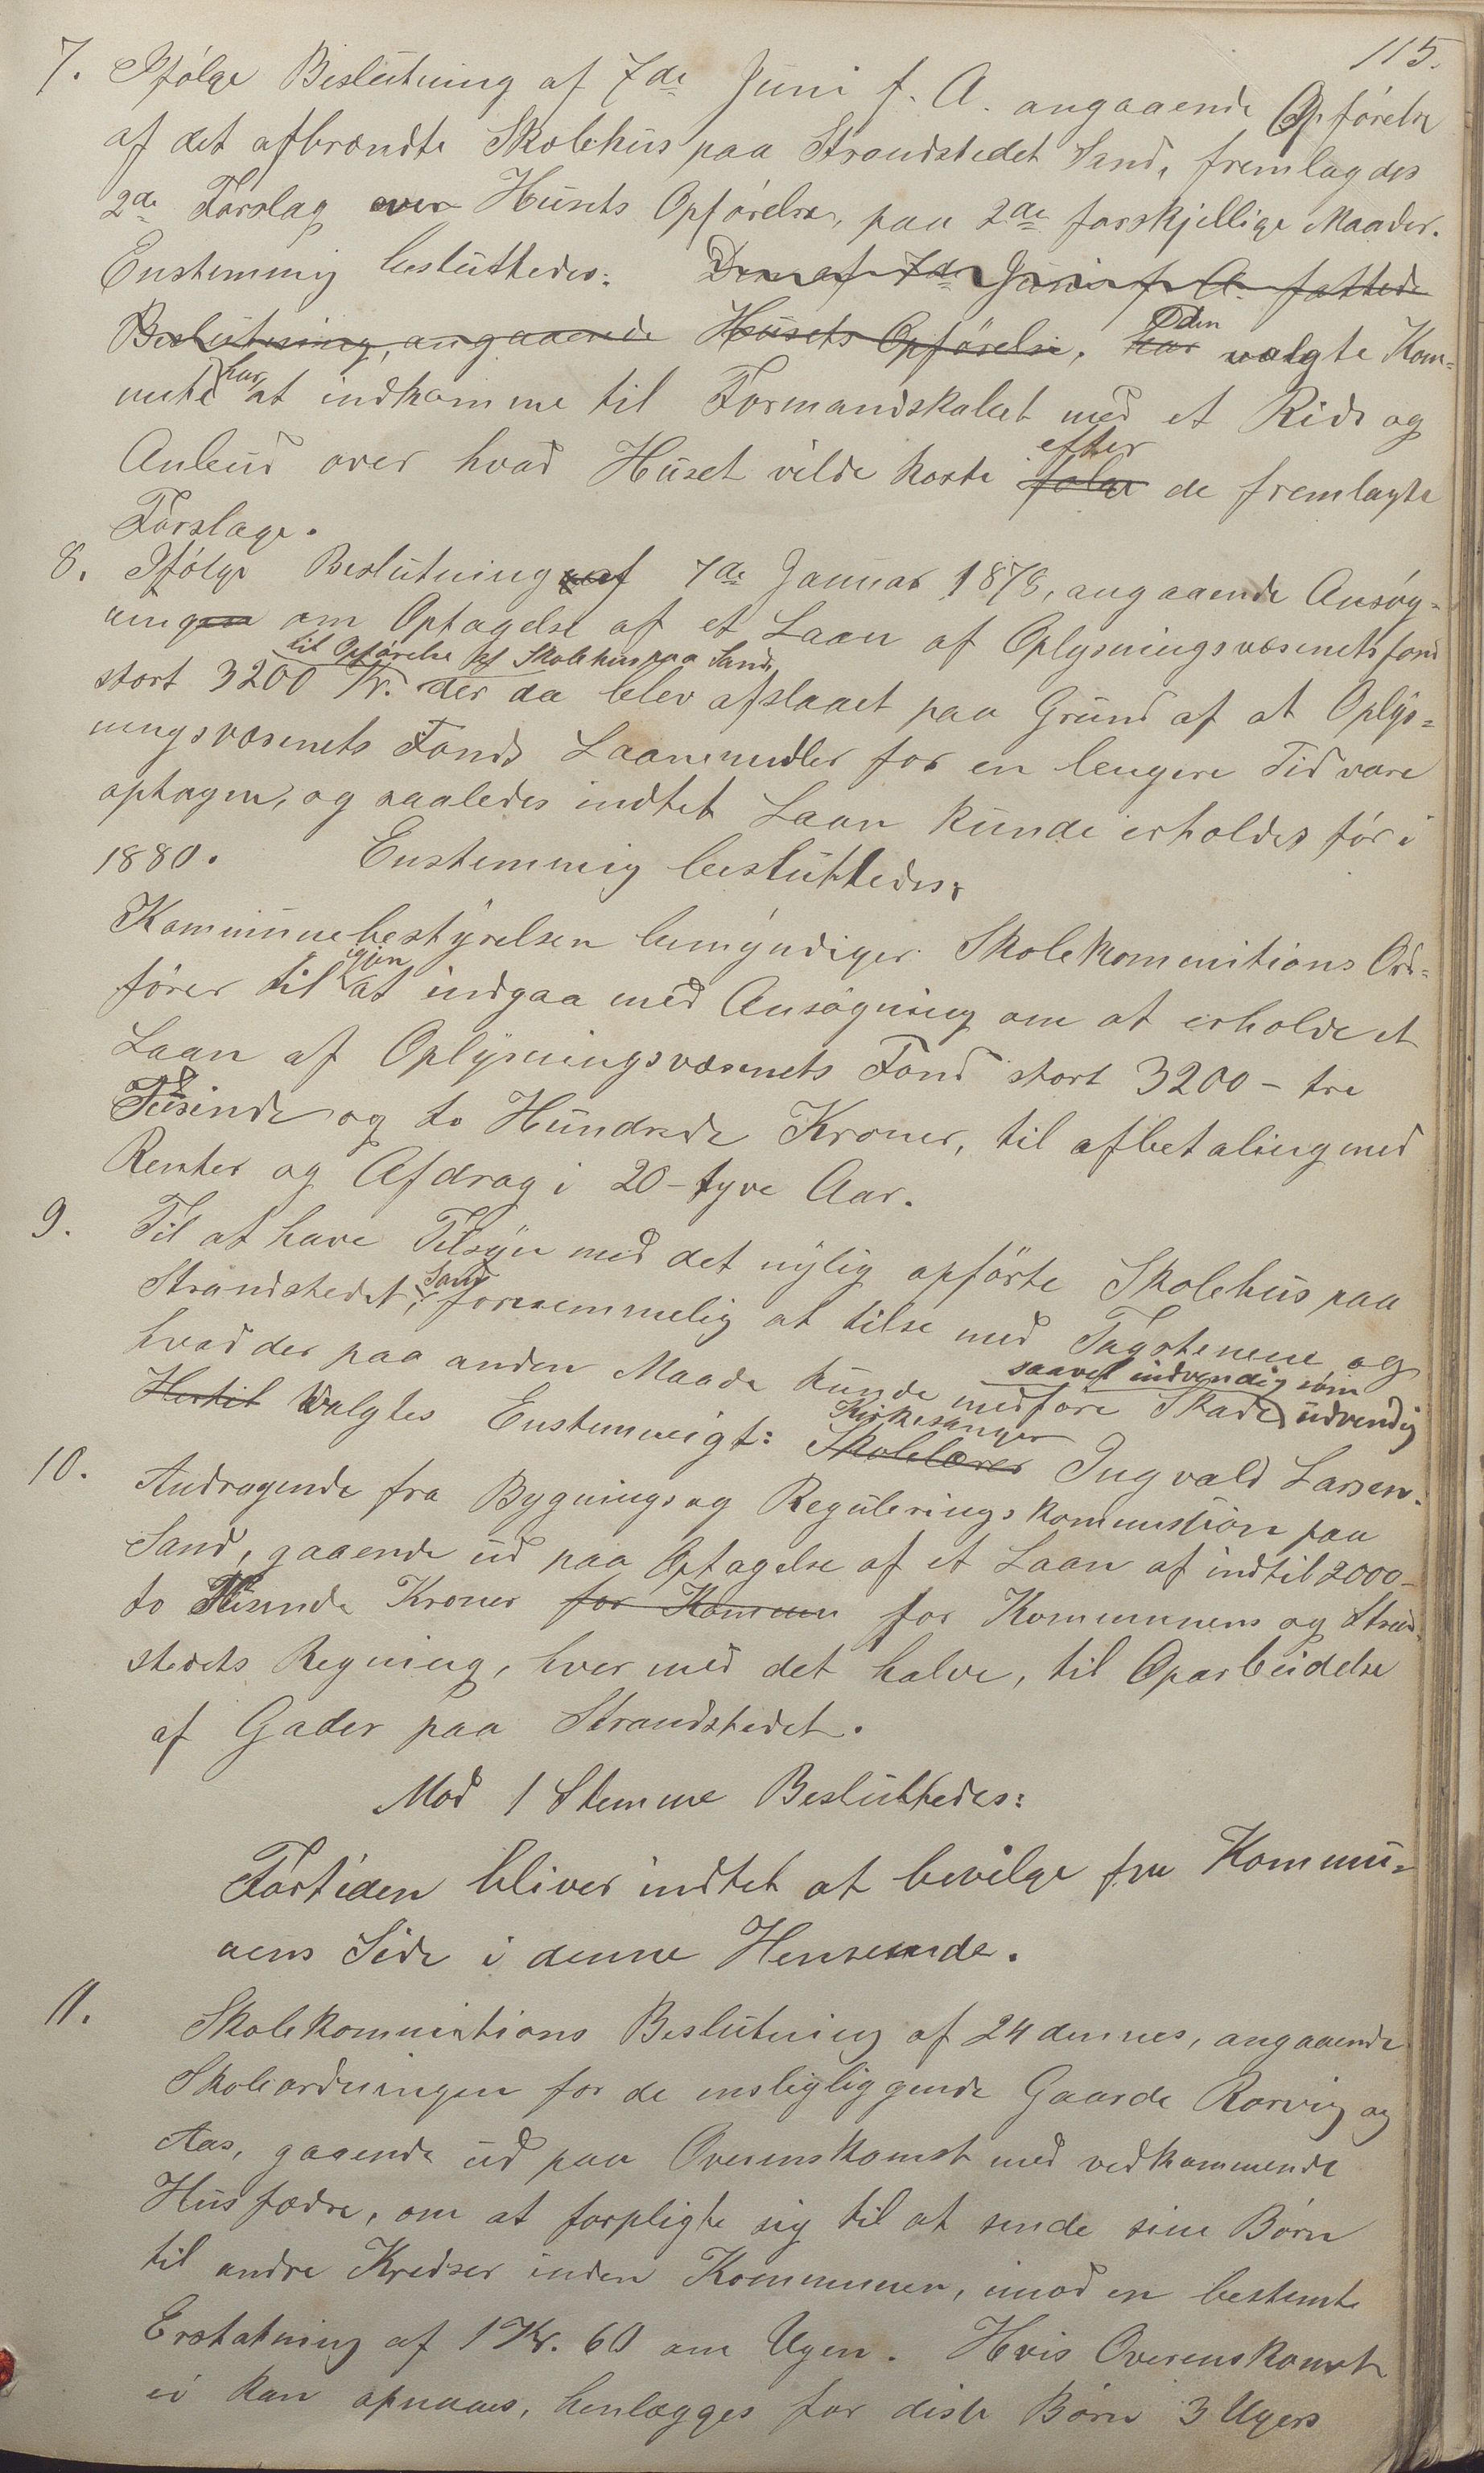 115.
7. Ifølge Beslutning af 7de Juni f. A. angaaende Opførelse
af det afbrændte Skolehus paa Strandstedet Sand, fremlagdes
2de Forslag over Husets Opførelse, paa 2de forskjellige Maader.
Enstemmig besluttedes: Den af 7de Juni f. A. fattede
Beslutning, angaaende Husets Opførelse, har Den valgte Kom-
mite har at indkomme til Formandskabet med et Rids og
Anbud over hvad Huset vilde koste følge efter de fremlagte
Forslage.
8. Ifølge Beslutning af 7de Januar 1878, angaaende Ansøg-
ningen om Optagelse af et Laan af Oplysningsvæsenets fond
til Opførelse af Skolehus paa Sand,
stort 3200 Kr. der da blev afslaaet paa Grund af at Oplys-
ningsvæsenets Fonds Laanemidler for en længere Tid vare
optagen, og saaledes indtet Laan kunde erholdes før i
1880. Enstemmig besluttedes:
Kommunebestyrelsen bemyndiger Skolekommitions Ord-
fører til igjen at indgaa med Ansøgning om at erholde et
Laan af Oplysningsvæsenets Fond stort 3200 - tre
Tusinde og to Hundrede Kroner, til afbetaling med
Renter og Afdrag i 20 - tyve Aar.
9. Til at have Tilsyn med det nylig opførte Skolehus paa
Strandstedet Sand, fornemmelig at tilse med Tagstenene og
hvad der paa anden Maade kunde medføre Skade saavel indvendig som udvendig
Hertil Valgtes Enstemmigt: Skolelærer Kirkesanger Ingvald Larsen.
10. Andragende fra Bygnings og Reguleringskommission paa
Sand, gaaende ud paa Optagelse af et Laan af indtil 2000 -
to Tusinde Kroner for Kommun for Kommunens og Strand-
stedets Regning, hver med det halve, til Oparbeidelse
af Gader paa Strandstedet.
Mod 1 Stemme Besluttedes:
Fortiden bliver indtet at bevilge fra Kommu-
nens Side i denne Henseende.
11. Skolekommitions Beslutning af 24 dennes, angaaende
Skoleordningen for de ensligliggende Gaarde Rørvig og
Aas, gaaende ud paa Overenskomst med vedkommende
Husfædre, om at forpligte sig til at sende sine Børn
til andre Kredser inden Kommunen, imod en bestemt
Erstatning af 1 Kr. 60 om Ugen. Hvis Overenskomst
ei kan opnaaes, henlægges for disse Børn 3 Ugers